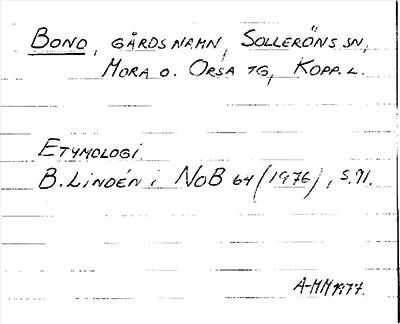 BOND, GÅRDSNAMN, SOLLERÖNS SN,
MORA O. ORSA TG, KOPP. L.
ETYMOLOGI.
B. LINDÉN i NoB 64 (1976), S. 91.
A-MM 1977.